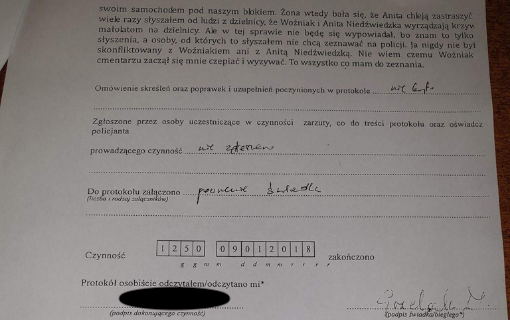 swoim samochodem pod naszym blokiem. Żona wtedy bała się, że Anita chciała zastraszyć
wiele razy słyszałem od ludzi z dzielnicy, że Woźniak i Anita Niedźwiedzka wyrządzają krzyw
małolatom na dzielnicy. Ale w tej sprawie nie będę się wypowiadał, bo znam to tylko
słyszenia, a osoby, od których to słyszałem nie chcą zeznawać na policji. Ja nigdy nie był
skonfliktowany z Woźniakiem ani z Anitą Niedźwiedzką. Nie wiem czemu Woźniak
cmentarzu zaczął się mnie czepiać i wyzywać. To wszystko co mam do zeznania.
Omówienie skreśleń oraz poprawek i uzupełnień poczynionych w protokole nie było
Zgłoszone przez osoby uczestniczące w czynności zarzuty, co do treści protokołu oraz oświadcz
policjanta
prowadzącego czynność nie zgłoszono
Do protokołu załączono pouczenie świadka
(liczba i rodzaj załączników)
Czynność 1250 09012018 zakończono
g g m m d d m m r r r r
Protokół osobiście odczytałem/odczytano mi*
(podpis dokonującego czynność) (podpis świadka/biegłego*)